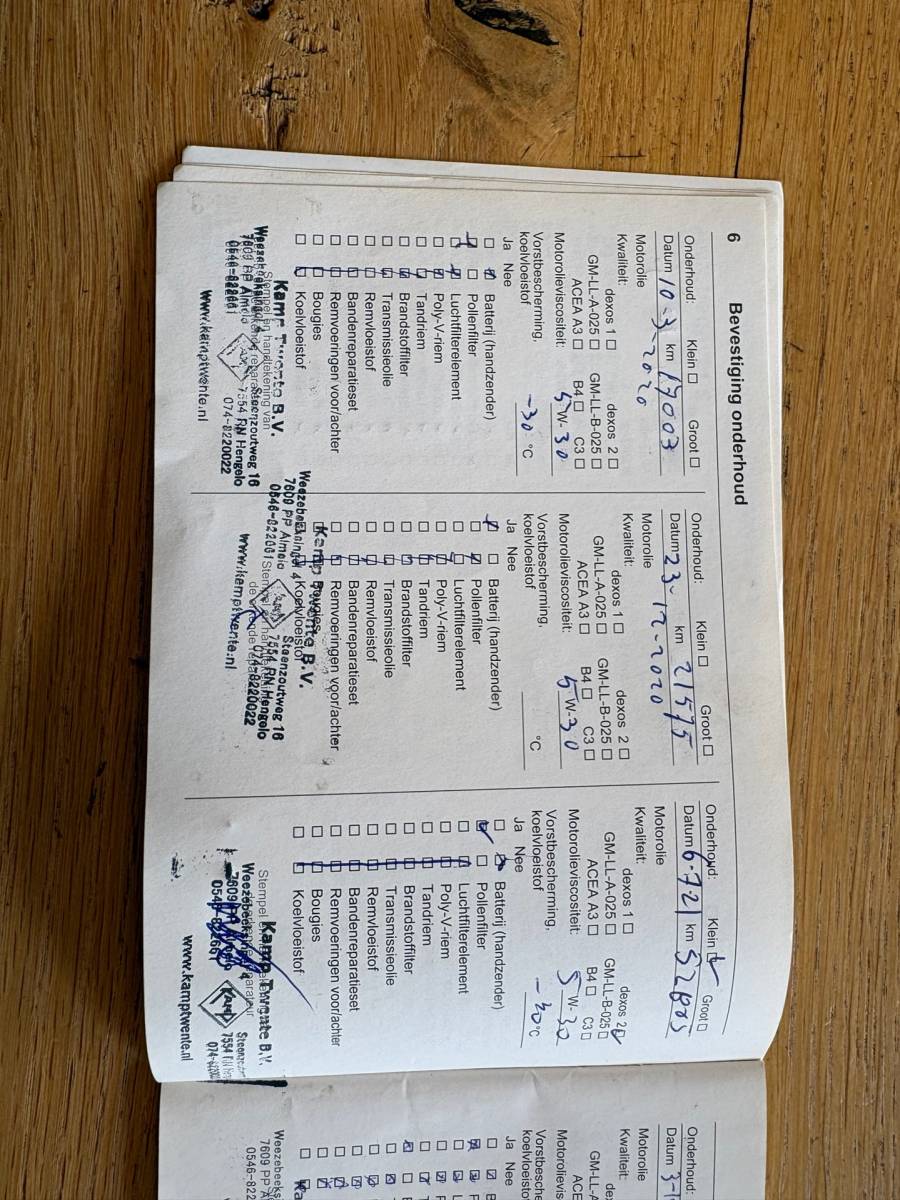 6 Bevestiging onderhoud
Onderhoud: Klein ☐ Groot ☐
Datum 10-3-2020 km 17003
Motorolie
Kwaliteit: dexos 1 ☐ dexos 2 ☐
GM-LL-A-025 ☐ GM-LL-B-025 ☐
ACEA A3 ☐ B4 ☐ C3 ☐
Motorolieviscositeit: 5 W-30
Vorstbescherming,
koelvloeistof -30 °C
Ja Nee
Batterij (handzender)
Pollenfilter
Luchtfilterelement
Poly-V-riem
Tandriem
Brandstoffilter
Transmissieolie
Remvloeistof
Bandenreparatieset
Remvoeringen voor/achter
Bougies
Koelvloeistof
Stempel en handtekening van
Kamp Twente B.V.
Weezebeeksingel 4 Steenzoutweg 16
7609 PP Almelo 7554 RN Hengelo
0546-822661 074-8220022
www.kamptwente.nl
Onderhoud: Klein ☐ Groot ☐
Datum 23-12-2020 km 21575
Motorolie
Kwaliteit: dexos 1 ☐ dexos 2 ☐
GM-LL-A-025 ☐ GM-LL-B-025 ☐
ACEA A3 ☐ B4 ☐ C3 ☐
Motorolieviscositeit: 5 W-30
Vorstbescherming,
koelvloeistof °C
Ja Nee
Batterij (handzender)
Pollenfilter
Luchtfilterelement
Poly-V-riem
Tandriem
Brandstoffilter
Transmissieolie
Remvloeistof
Bandenreparatieset
Remvoeringen voor/achter
Bougies
Koelvloeistof
Kamp Twente B.V.
Weezebeeksingel 4 Steenzoutweg 16
7609 PP Almelo 7554 RN Hengelo
0546-822661 074-8220022
www.kamptwente.nl
Onderhoud: Klein ☑ Groot ☐
Datum 6-7-21 km
Motorolie
Kwaliteit: dexos 1 ☐ dexos 2 ☑
GM-LL-A-025 ☐ GM-LL-B-025 ☐
ACEA A3 ☐ B4 ☐ C3 ☐
Motorolieviscositeit: 5 W-30
Vorstbescherming,
koelvloeistof -30 °C
Ja Nee
Batterij (handzender)
Pollenfilter
Luchtfilterelement
Poly-V-riem
Tandriem
Brandstoffilter
Transmissieolie
Remvloeistof
Bandenreparatieset
Remvoeringen voor/achter
Bougies
Koelvloeistof
Stempel
Kamp Twente B.V.
Weezebeeksingel 4
7609 PP Almelo 7554 RN
www.kamptwente.nl
Onderhoud:
Datum
Motorolie
Kwaliteit:
GM-LL-A
ACEA
Motorolievis
Vorstbescherming
koelvloeistof
Ja Nee
Weezebeeks
7609 PP A
0546-822